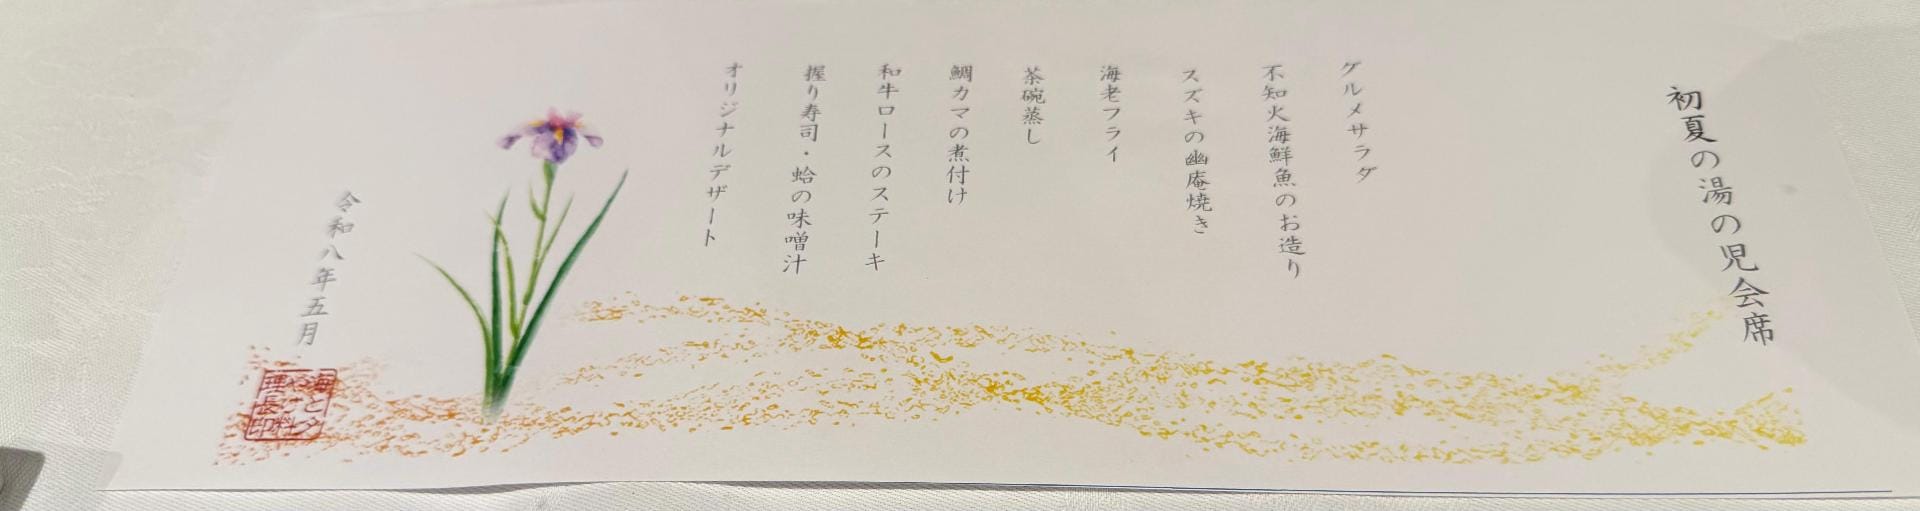 初夏の湯の児会席
グルメサラダ
不知火海鮮魚のお造り
スズキの幽庵焼き
海老フライ
茶碗蒸し
鯛カマの煮付け
和牛ロースのステーキ
握り寿司・蛤の味噌汁
オリジナルデザート
令和八年五月
海と夕
やけ料
理長印